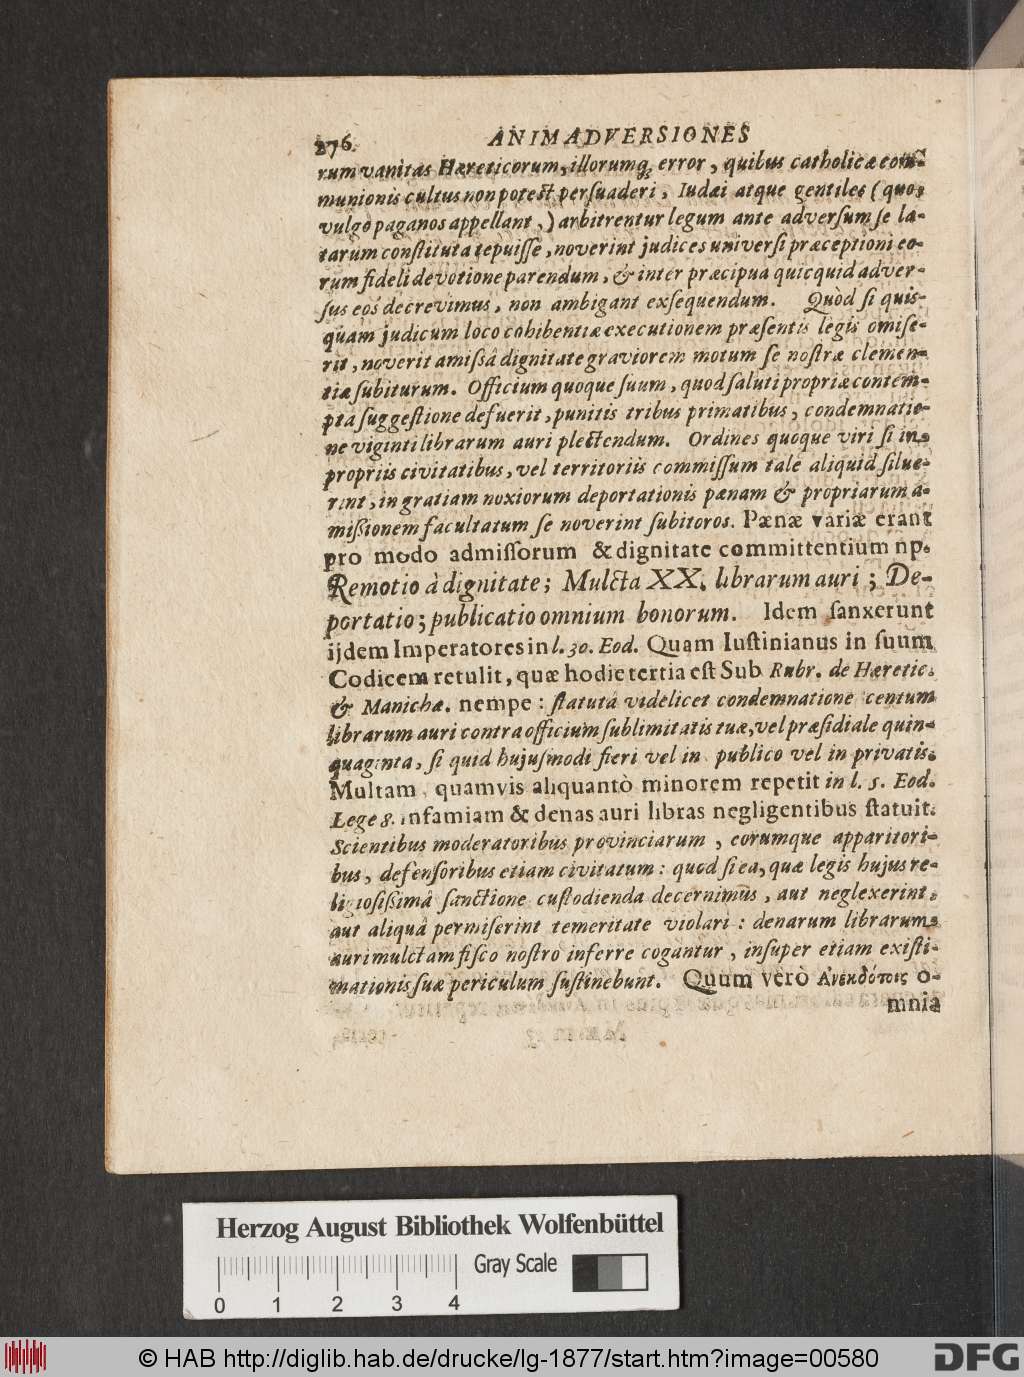 276 ANIMADVERSIONES
rum vanitas Hæreticorum, illorumq; error, quibus catholicæ com-
munionis cultus non potest persuaderi, Iudæi atque gentiles (quos
vulgò paganos appellant,) arbitrentur legum ante adversum se la-
tarum constituta tepuisse, noverint judices universi præceptioni eo-
rum fideli devotione parendum, & inter præcipua quicquid adver-
sus eos decrevimus, non ambigant exsequendum. Quòd si quis-
quam judicum loco cohibentiæ executionem præsentis legis omise-
rit, noverit amissâ dignitate graviorem motum se nostræ clemen-
tiæ subiturum. Officium quoque suum, quod saluti propriæ contem-
pta suggestione defuerit, punitis tribus primatibus, condemnatio-
ne viginti librarum auri plectendum. Ordines quoque viri si in
propriis civitatibus, vel territoriis commissum tale aliquid silue-
rint, in gratiam noxiorum deportationis pænam & propriarum a-
missionem facultatum se noverint subituros. Pænæ variæ erant
pro modo admissorum & dignitate committentium np.
Remotio à dignitate; Mulcta XX. librarum auri; De-
portatio; publicatio omnium bonorum. Idem sanxerunt
ijdem Imperatores in l. 30. Eod. Quam Iustinianus in suum
Codicem retulit, quæ hodie tertia est Sub Rubr. de Hæretic.
& Manichæ. nempe: statutâ videlicet condemnatione centum
librarum auri contra officium sublimitatis tuæ, vel præsidiale quin-
quaginta, si quid hujusmodi fieri vel in publico vel in privatis.
Multam, quamvis aliquantò minorem repetit in l. 5. Eod.
Lege 8. infamiam & denas auri libras negligentibus statuit.
Scientibus moderatoribus provinciarum, eorumque apparitori-
bus, defensoribus etiam civitatum: quod si ea, quæ legis hujus re-
ligiosissimâ sanctione custodienda decernimus, aut neglexerint,
aut aliquâ permiserint temeritate violari: denarum librarum
auri mulctam fisco nostro inferre cogantur, insuper etiam existi-
mationis suæ periculum sustinebunt. Quum verò Ἀνεκδότοις o-
mnia
Herzog August Bibliothek Wolfenbüttel
Gray Scale
0 1 2 3 4
© HAB http://diglib.hab.de/drucke/lg-1877/start.htm?image=00580
DFG